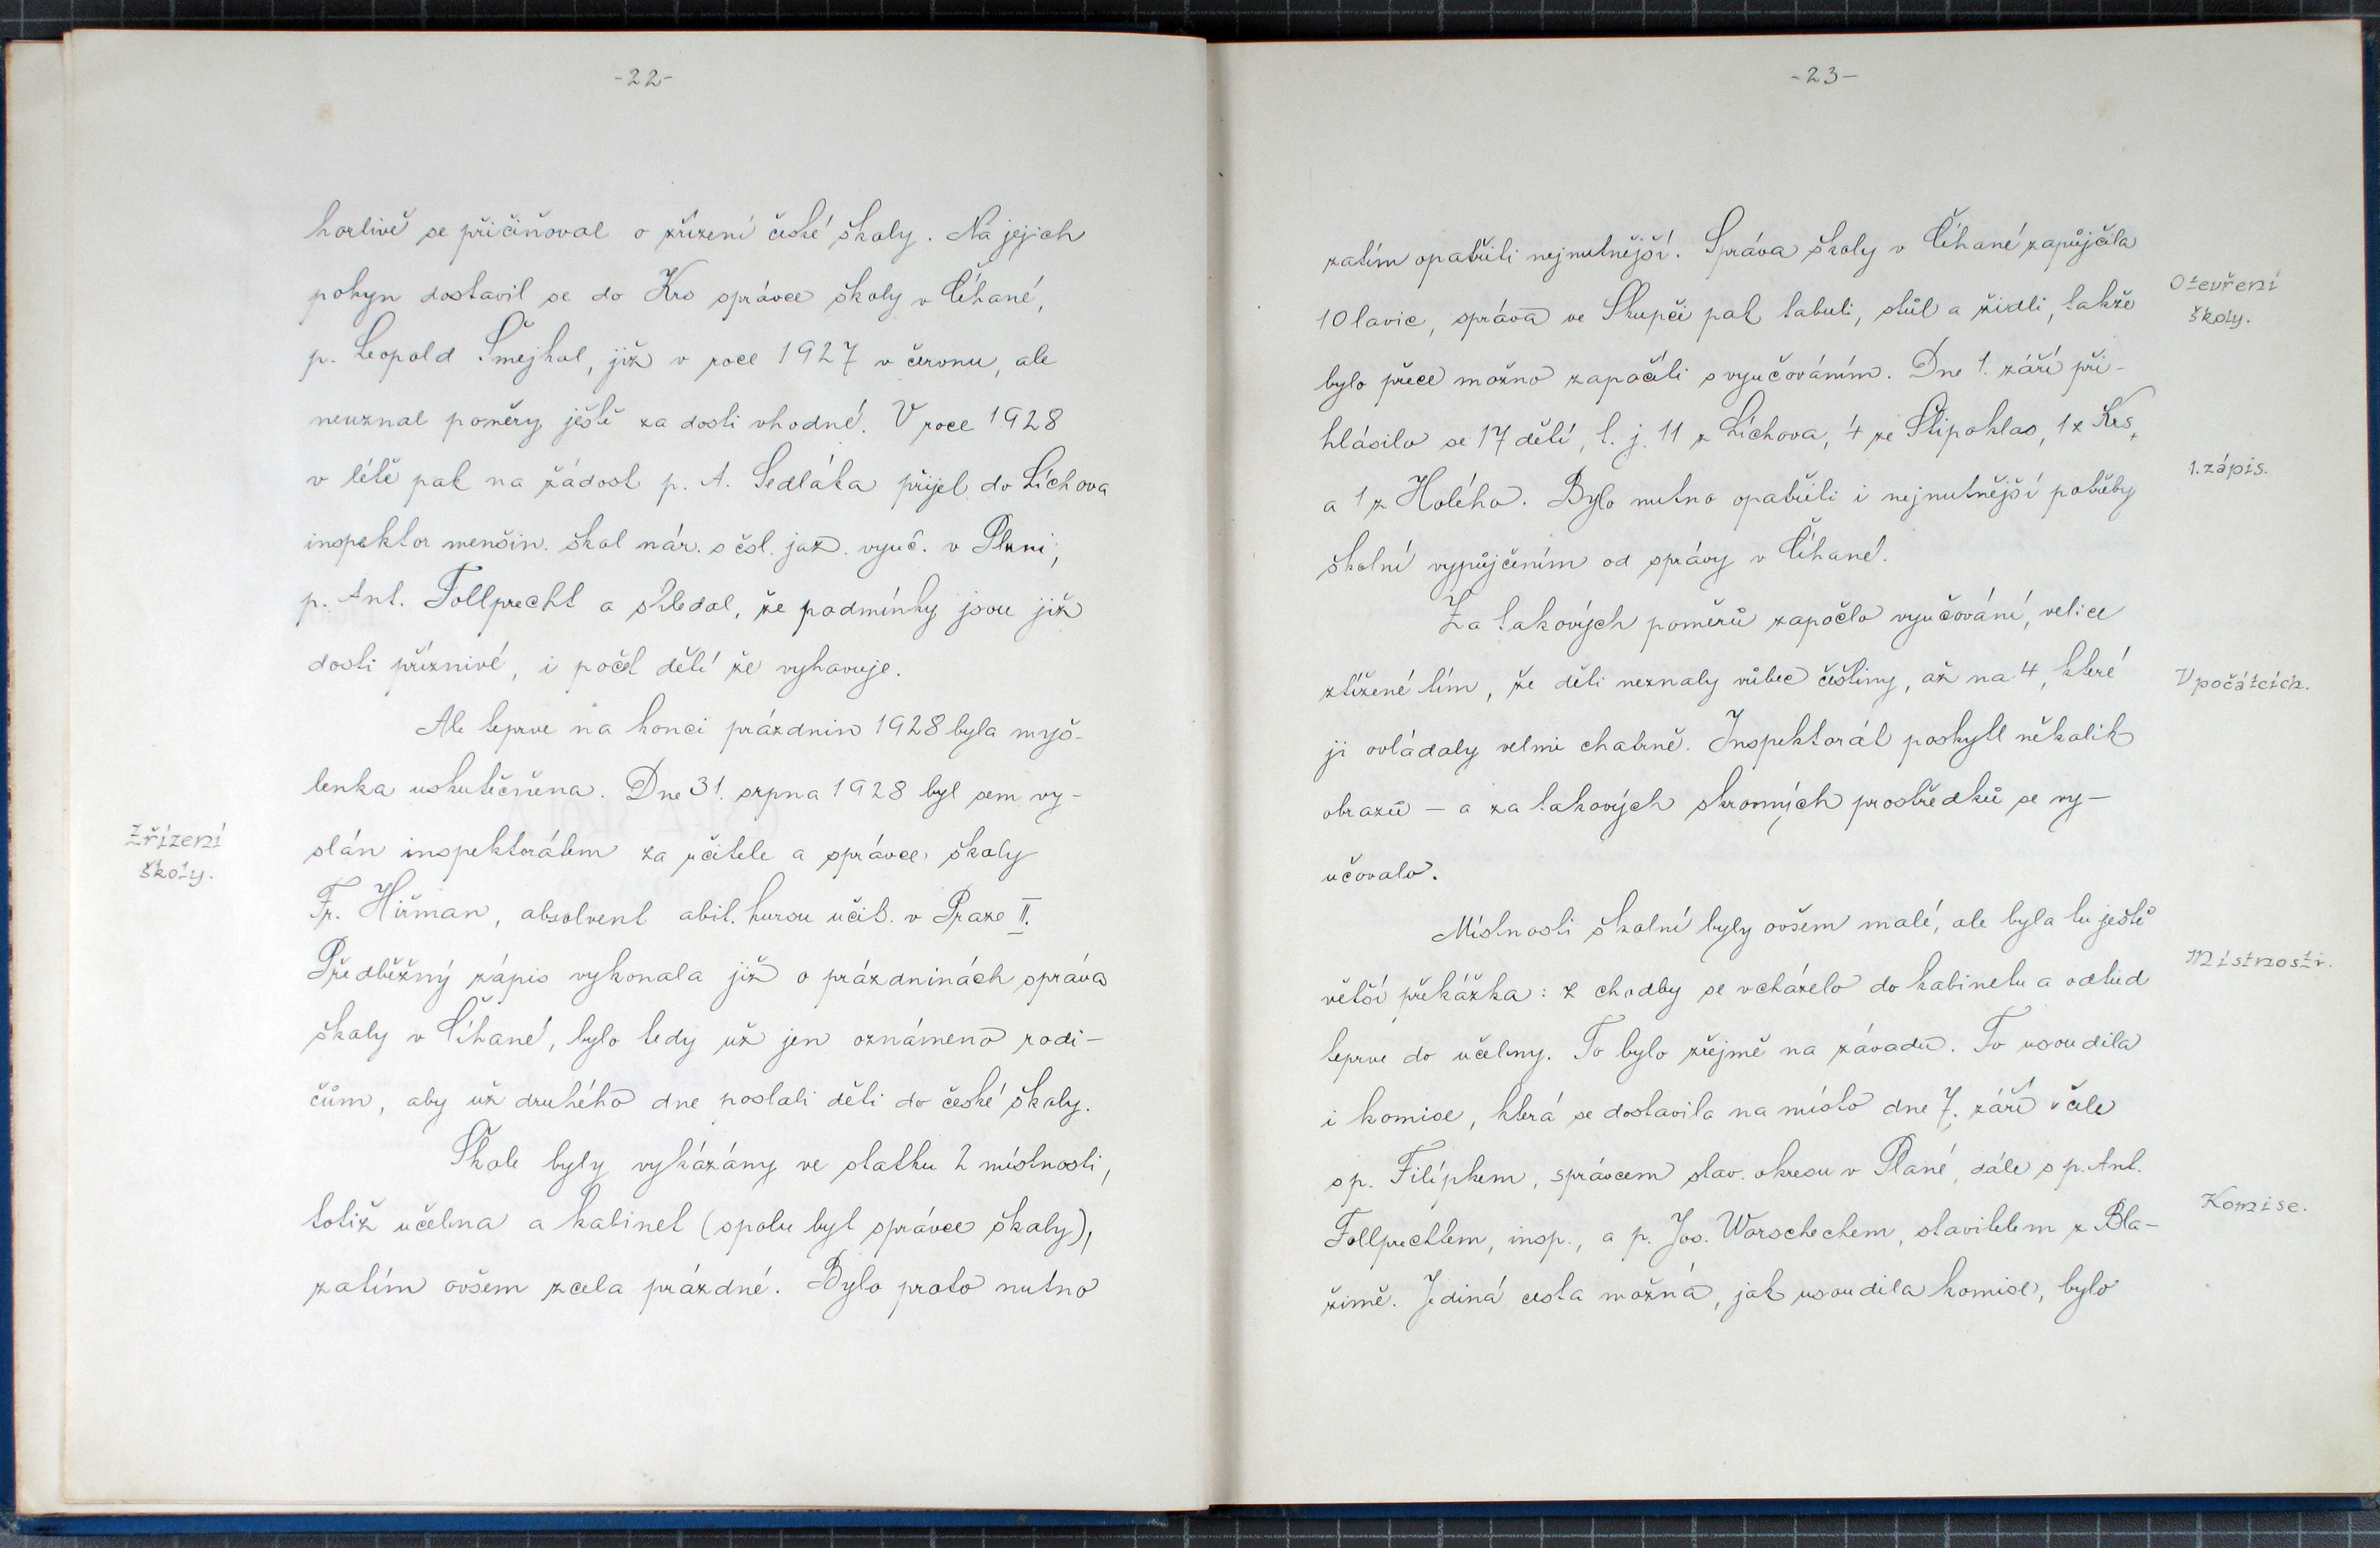 -22-
horlivě se přičiňoval o zřízení české školy. Na jejich
pokyn dostavil se do Krs správce školy v Číhané,
p. Leopold Šmejkal, již v roce 1927 v červnu, ale
neuznal poměry ještě za dosti vhodné. V roce 1928
v létě pak na žádost p. A. Sedláka přijel do Líchova
inspektor menšin. škol nár. s čsl. jaz. vyuč. v Plzni,
p. Ant. Follprecht a shledal, že podmínky jsou již
dosti příznivé, i počet dětí že vyhavuje.
Ale teprve na konci prázdnin 1928 byla myš-
lenka uskutečněna. Dne 31. srpna 1928 byl sem vy-
Zřízení
školy.
slán inspektorátem za učitele a správce školy
Fr. Hiřman, absolvent abit. kursu učit. v Praze II.
Předběžný zápis vykonala již o prázdninách správa
školy v Číhané, bylo tedy už jen oznámeno rodi-
čům, aby už druhého dne poslali děti do české školy.
Škole byly vykázány ve statku 2 místnosti,
totiž učebna a kabinet (spolu byt správce školy),
zatím ovšem zcela prázdné. Bylo proto nutno
-23-
zatím opatřiti nejnutnější. Správa školy v Číhané zapůjčila
Otevření
školy.
10 lavic, správa ve Skupči pak tabuli, stůl a židli, takže
bylo přece možno započíti s vyučováním. Dne 1. září při-
hlásilo se 17 dětí, t. j. 11 z Líchova, 4 ze Štipoklas, 1 z Krs,
1. zápis.
a 1 z Holého. Bylo nutno opatřiti i nejnutnější potřeby
školní vypůjčením od správy v Číhané.
Za takových poměrů započlo vyučování, velice
ztížené tím, že děti neznaly vůbec češtiny, až na 4, které
V počátcích.
ji ovládaly velmi chatrně. Inspektorát poskytl několik
obrazů - a za takových skrovných prostředků se vy-
učovalo.
Místnosti školní byly ovšem malé, ale byla tu ještě
Místnosti.
větší překážka: z chodby se vcházelo do kabinetu a odtud
teprve do učebny. To bylo zřejmě na závadu. To usoudila
i komise, která se dostavila na místo dne 7. září v čele
s p. Filípkem, správcem stav. okresu v Plané, dále s p. Ant.
Komise.
Follprechtem, insp., a p. Jos. Worschechem, stavitelem z Bla-
žimě. Jediná cesta možná, jak usoudila komise, bylo